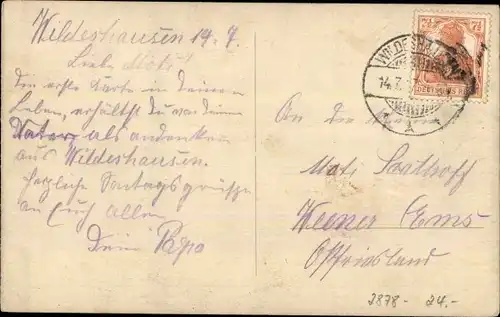 Wildeshausen 14. 7.
Liebe Moti!
Die erste Karte in deinem
Leben, erhältst du von deinem
Vater, als andenken
aus Wildeshausen.
Herzliche Sontagsgrüsse
an Euch allen
Dein Papa
7½ 7½
DEUTSCHES
WILDESHAUSEN
14.7.
An
Moti Saathoff
Weener Ems
Ostfriesland
2878 - 24.-